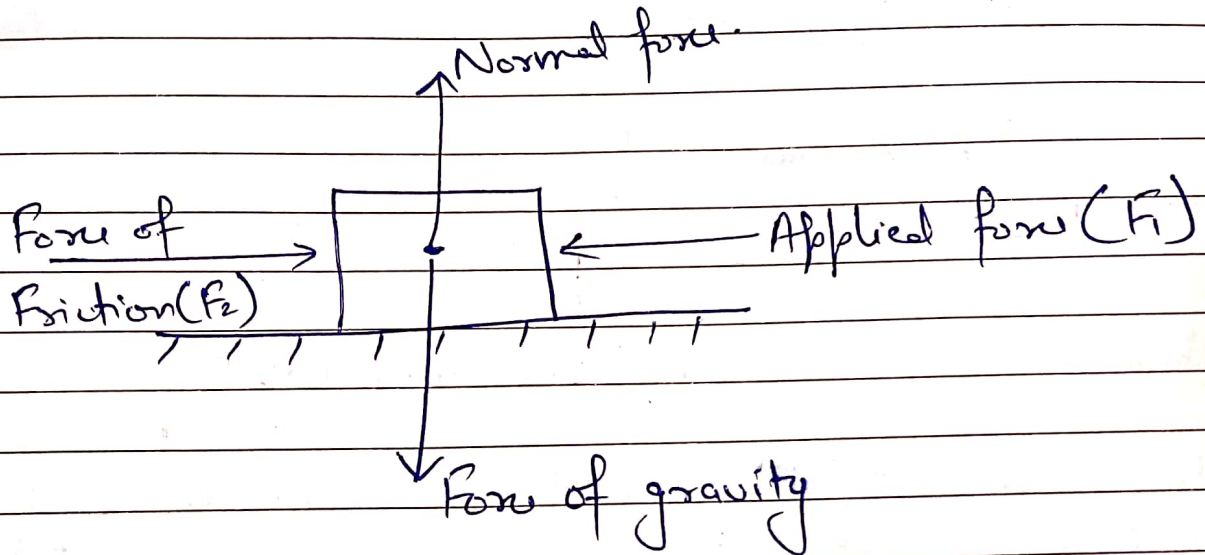 Normal force.
Force of
Friction (F2)
Applied force (F1)
Force of gravity